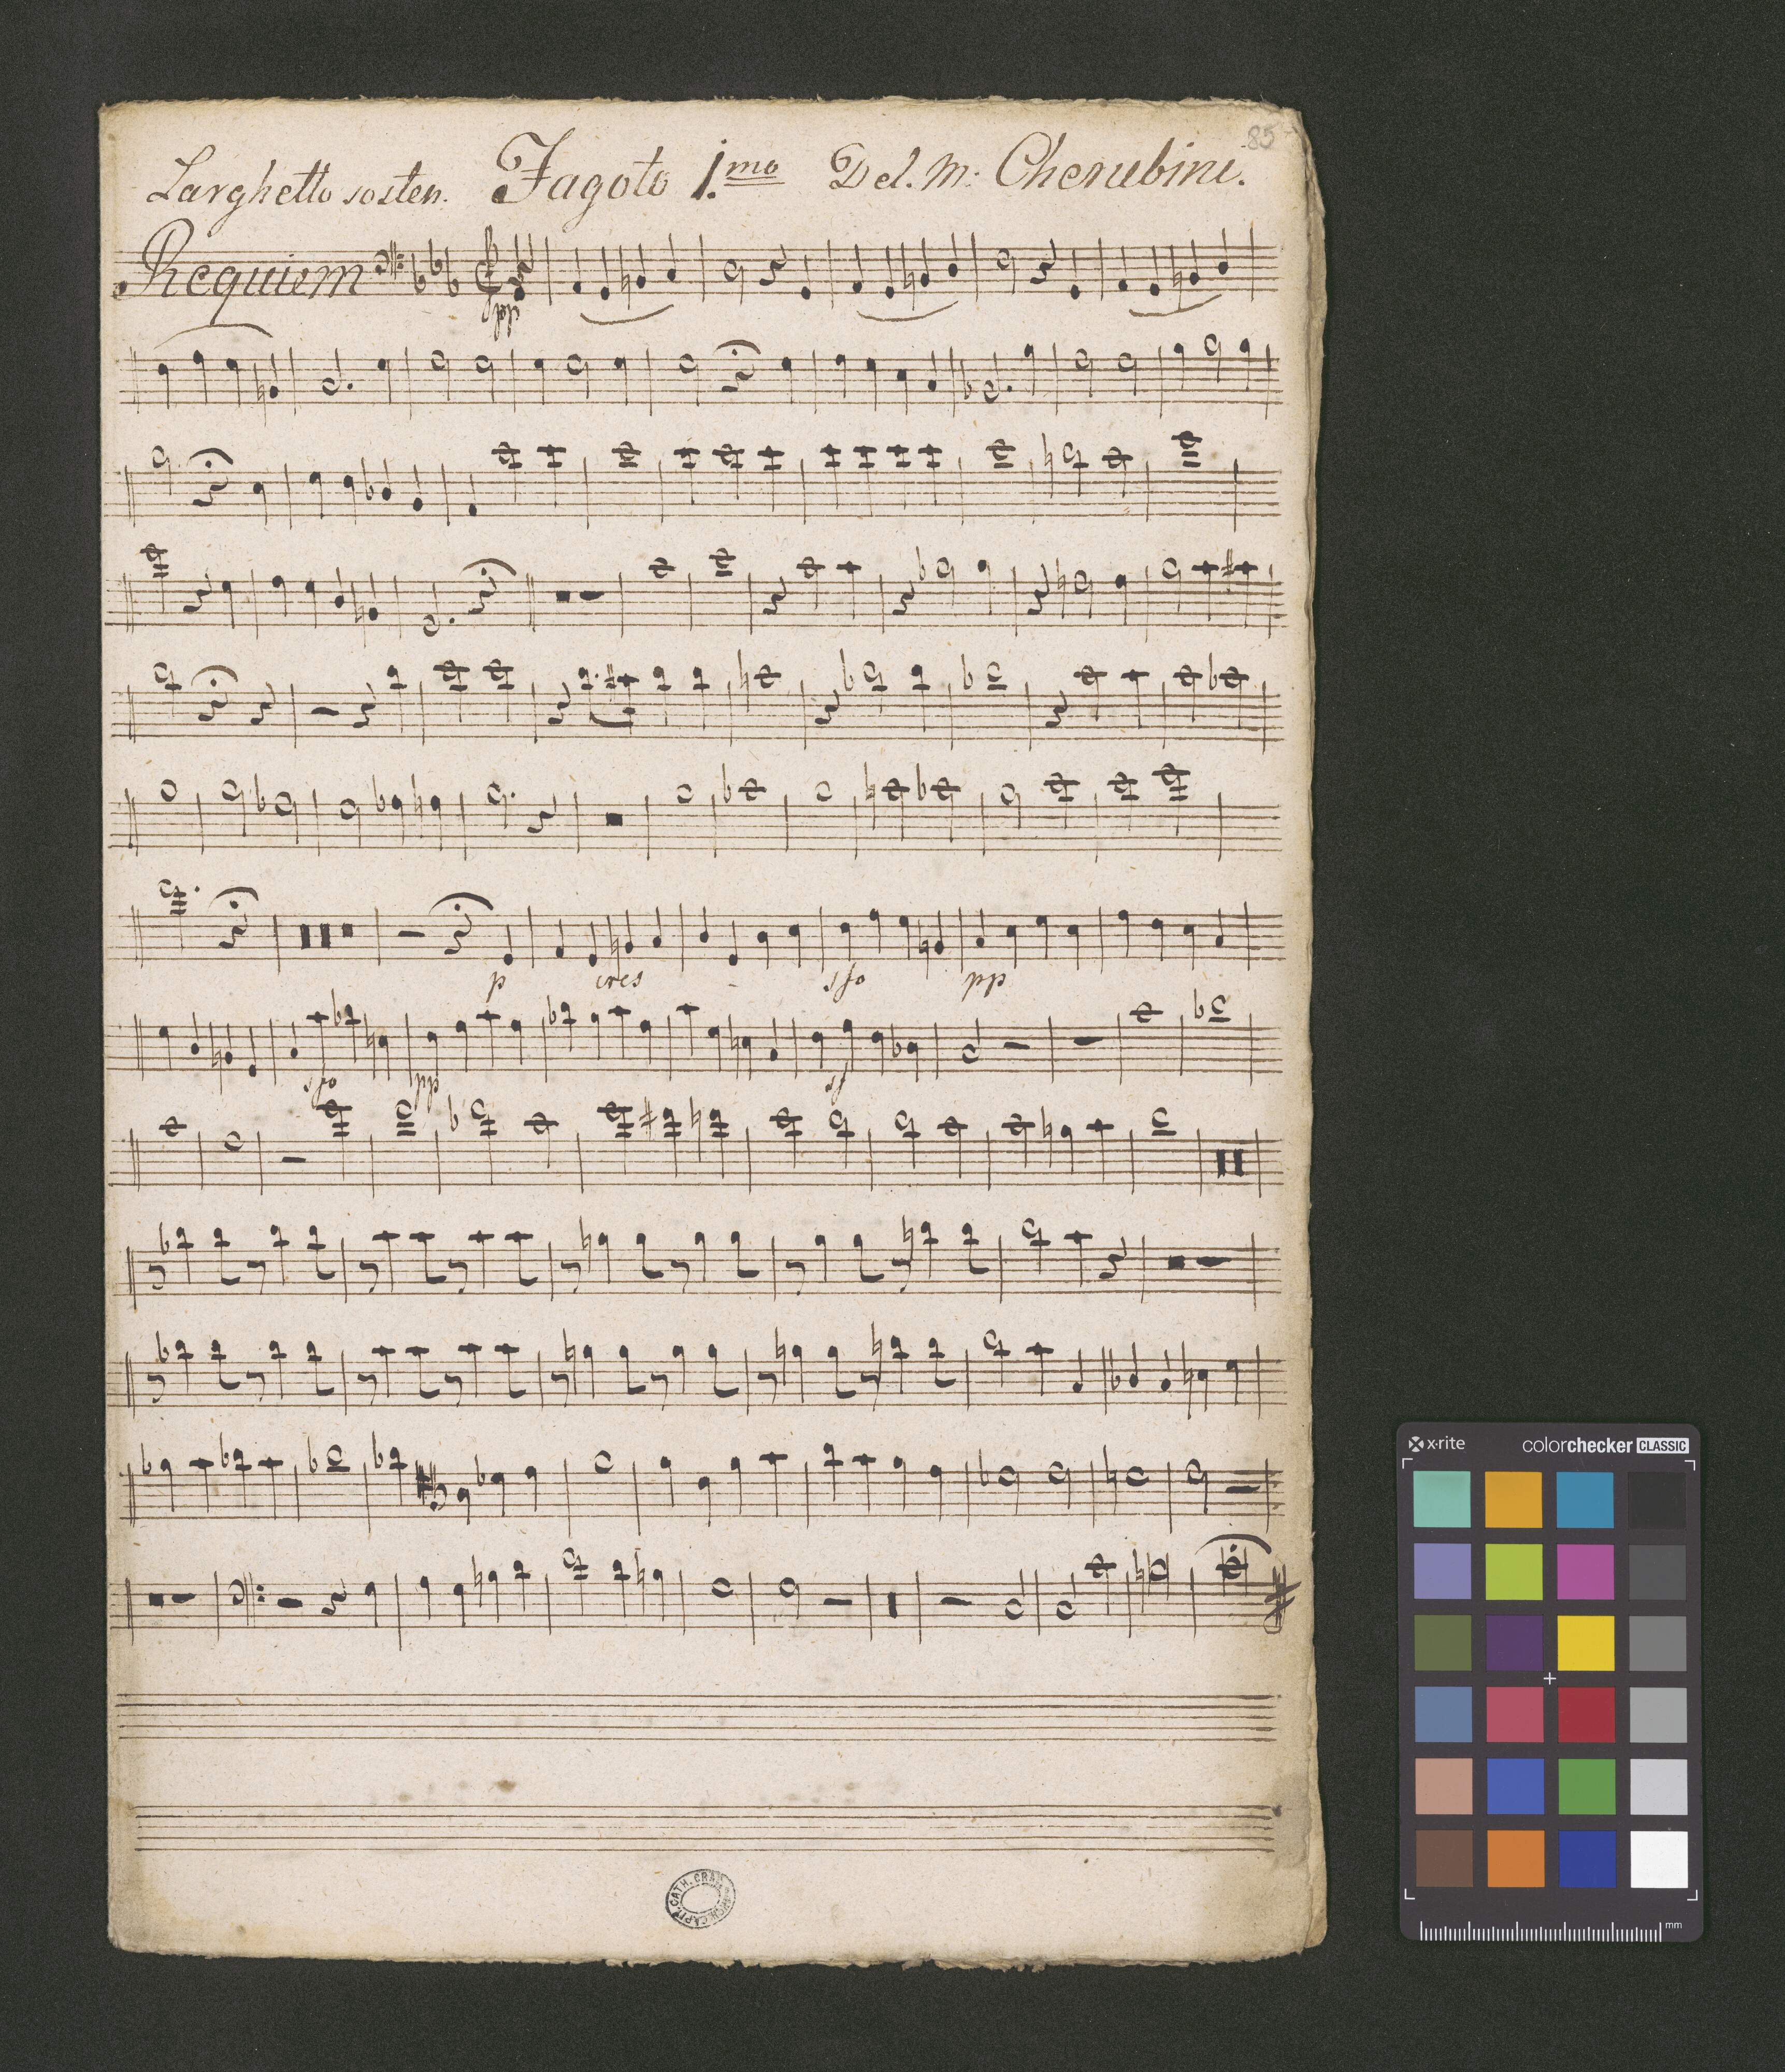 85
Larghetto sosten. Fagoto 1.mo Del. M: Cherubini.
Requiem
p cres sfo pp
sfo pp sf
x·rite colorchecker CLASSIC
mm